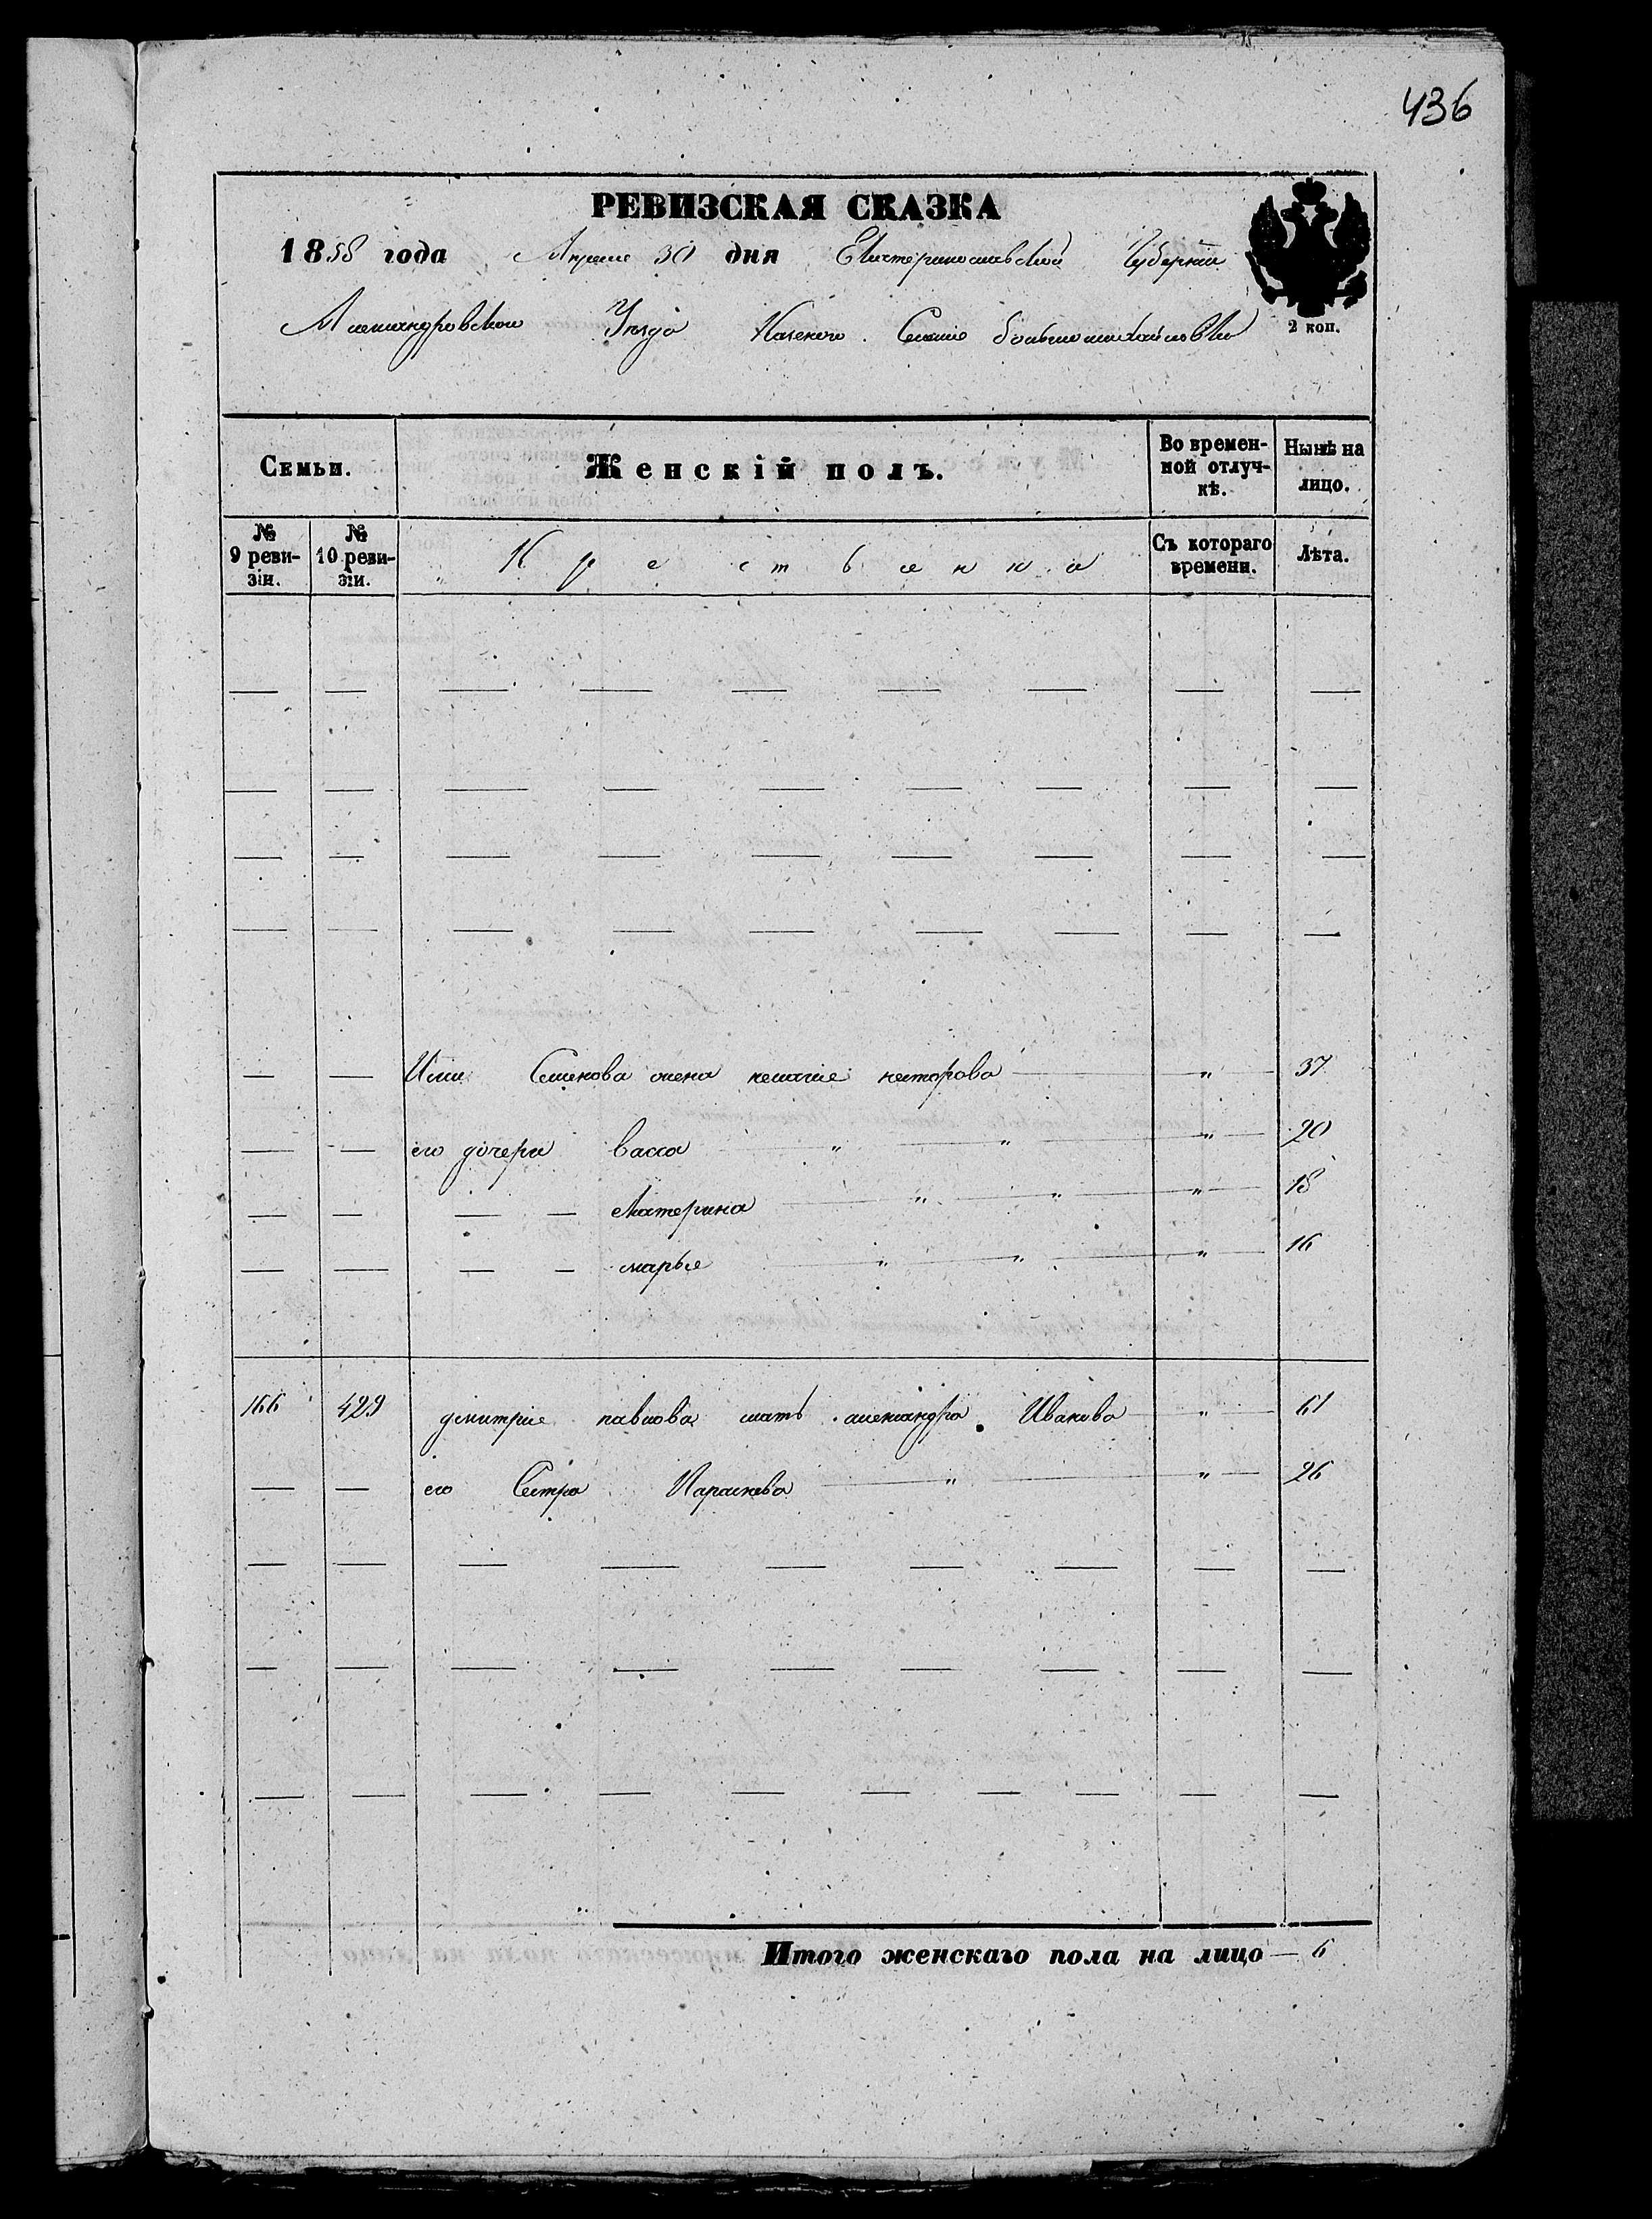 436
РЕВИЗСКАЯ СКАЗКА
1858 года Апреле 30 дня Екатеринославской Губернии
Александровскои Уезда Казеного Селение большомихайловки
2 коп.
Семьи. Женскій полъ. Во времен-ной отлуч-кѣ. Нынѣ на лицо.
№ 9 реви-зіи. № 10 реви-зіи. Съ котораго времени. Лѣта.
— — Семенова жена пелагие несторова — " — 37
— — его дочери васса — " — " — " — 20
— — — — екатерина — " — " — " — 18
— — — — марье — " — " — " — 16
166 429 дмитрие павлова мать александра Иванова — " — 61
— — его Сестра Параскева — " — " — 26
Итого женскаго пола на лицо — 6